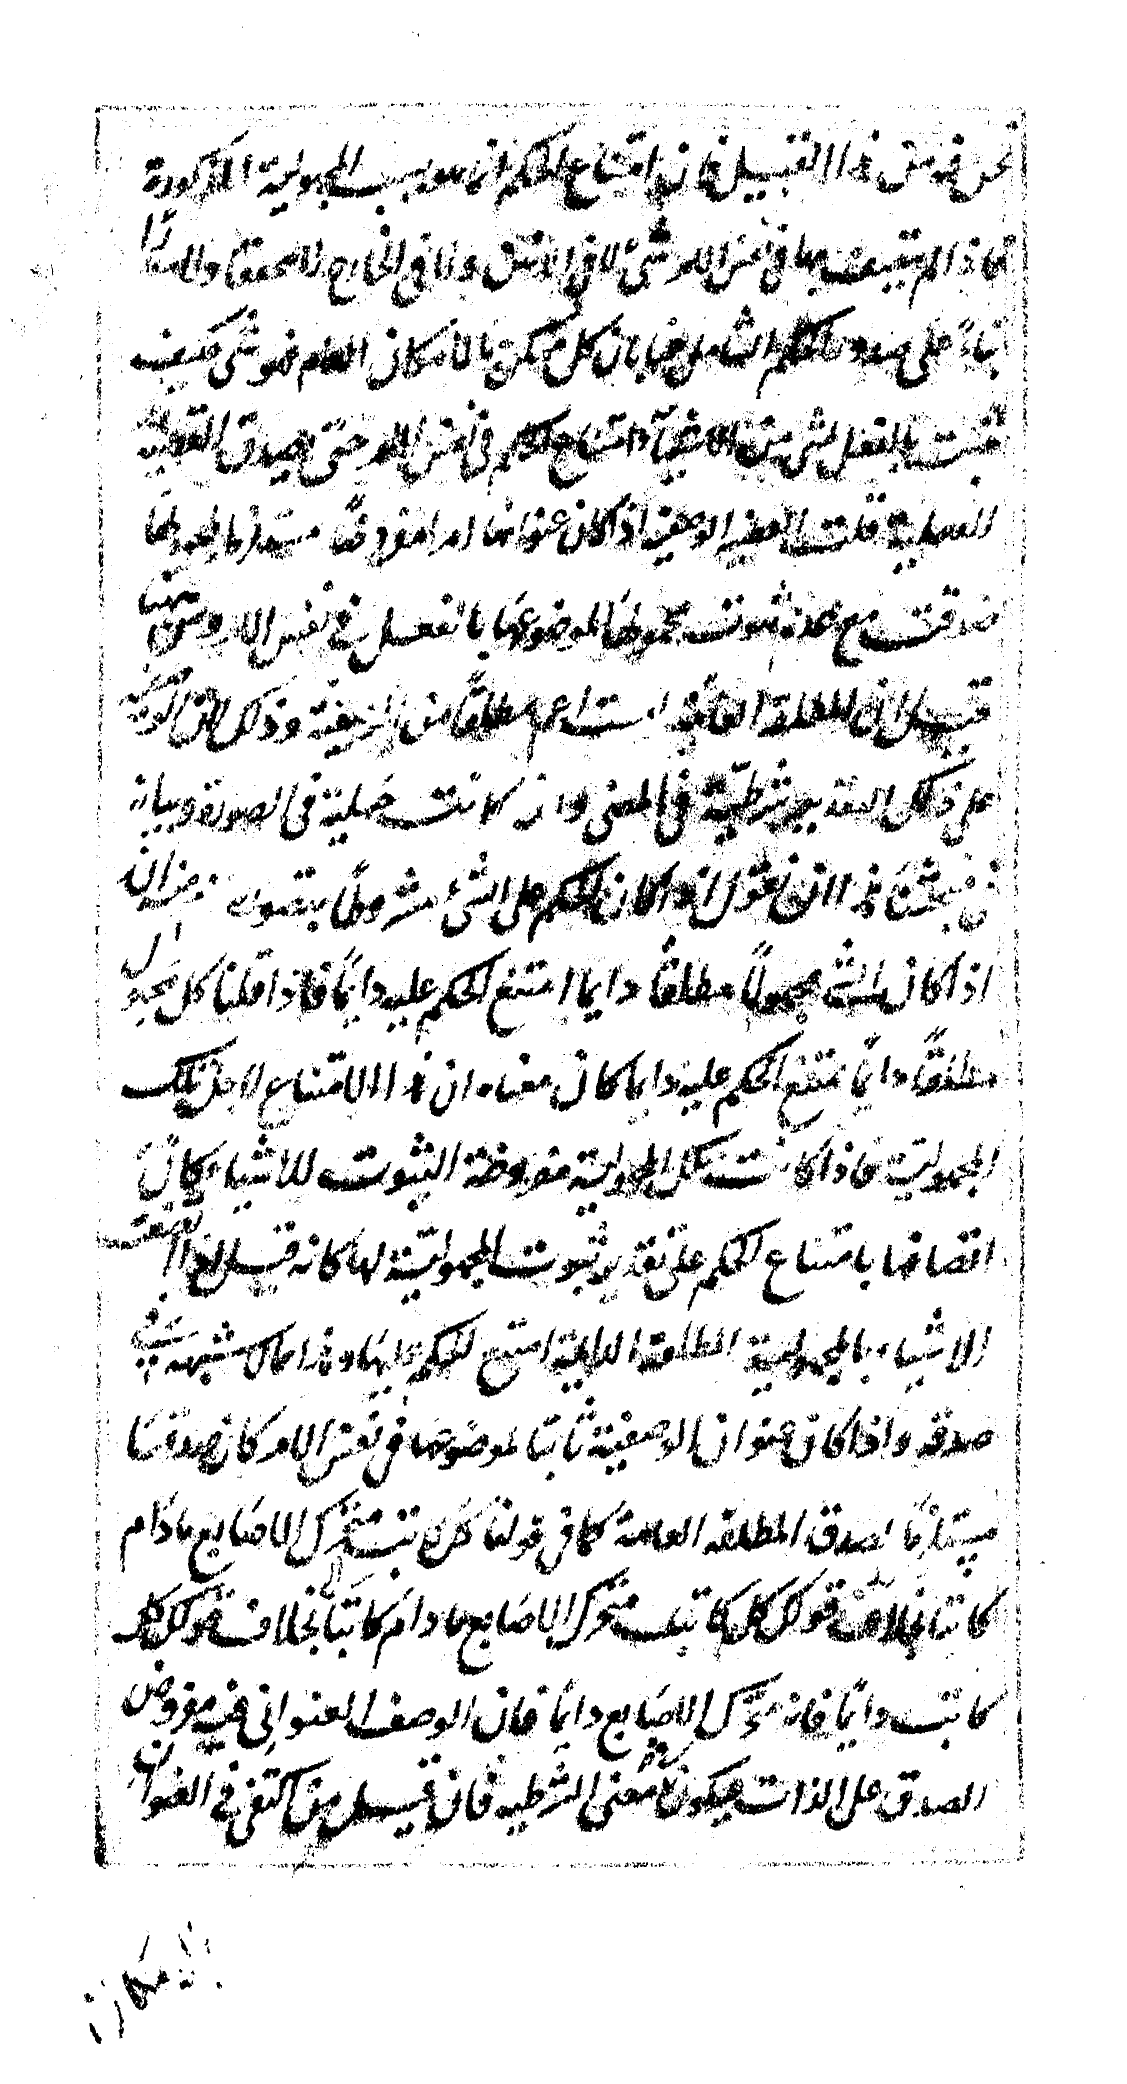 نحن فيه من هذا القبيل فان امتناع الحكم انما هو بسبب المجهولية المذكورة
فاذا لم يتصف بها في نفس الامر شئ لا في الذهن ولا في الخارج لا محققا ولا مقدرا
بناء على صدق الحكم الشامل بان كل ممكن بالامكان العام فهو شئ كيف
يثبت بالفعل لشئ من الاشياء امتناع الحكم في نفس الامر حتى يصدق القضية
الفعلية قلت القضية الوصفية اذا كان عنوانها امرا مفروضا مستلزما لمحمولها
صدقت مع عدم ثبوت محمولها لموضوعها بالفعل في نفس الامر ومن ههنا
قيل ان المطلقة العامة ليست اعم مطلقا من الوصفية وذلك لان الوصفية
على ذلك التقدير شرطية في المعنى وان كانت حملية في الصورة وبيانه
فيما نحن هذا ان نقول اذا كان الحكم على الشئ مشروطا بتصوره فرضا ان
اذا كان الشئ مجهولا مطلقا دايما امتنع الحكم عليه دايما فاذا قلنا كل مجهول
مطلقا دايما يمتنع الحكم عليه دايما كان معناه ان هذا الامتناع لاجل تلك
المجهولية فاذا كانت تلك المجهولية مفروضة الثبوت للاشياء كان
اتصافها بامتناع الحكم على تقدير ثبوت المجهولية لها كانه قيل لو اتصفت
الاشياء بالمجهولية المطلقة الدايمة امتنع الحكم عليها وهذا مما لا شبهة في
صدقه واذا كان عنوان الوصفية ثابتا لموضوعها في نفس الامر كان صدقها
مستلزما لصدق المطلقة العامة كما في قولنا كل كاتب متحرك الاصابع مادام
كاتبا بخلاف قولك كل كاتب متحرك الاصابع مادام كاتبا بخلاف قولك كل
كاتب دايما فانه متحرك الاصابع دايما فان الوصف العنواني فيه مفروض
الصدق على الذات فيكون في معنى الشرطية فان قيل من اكتفى في العنوان
بالامكان